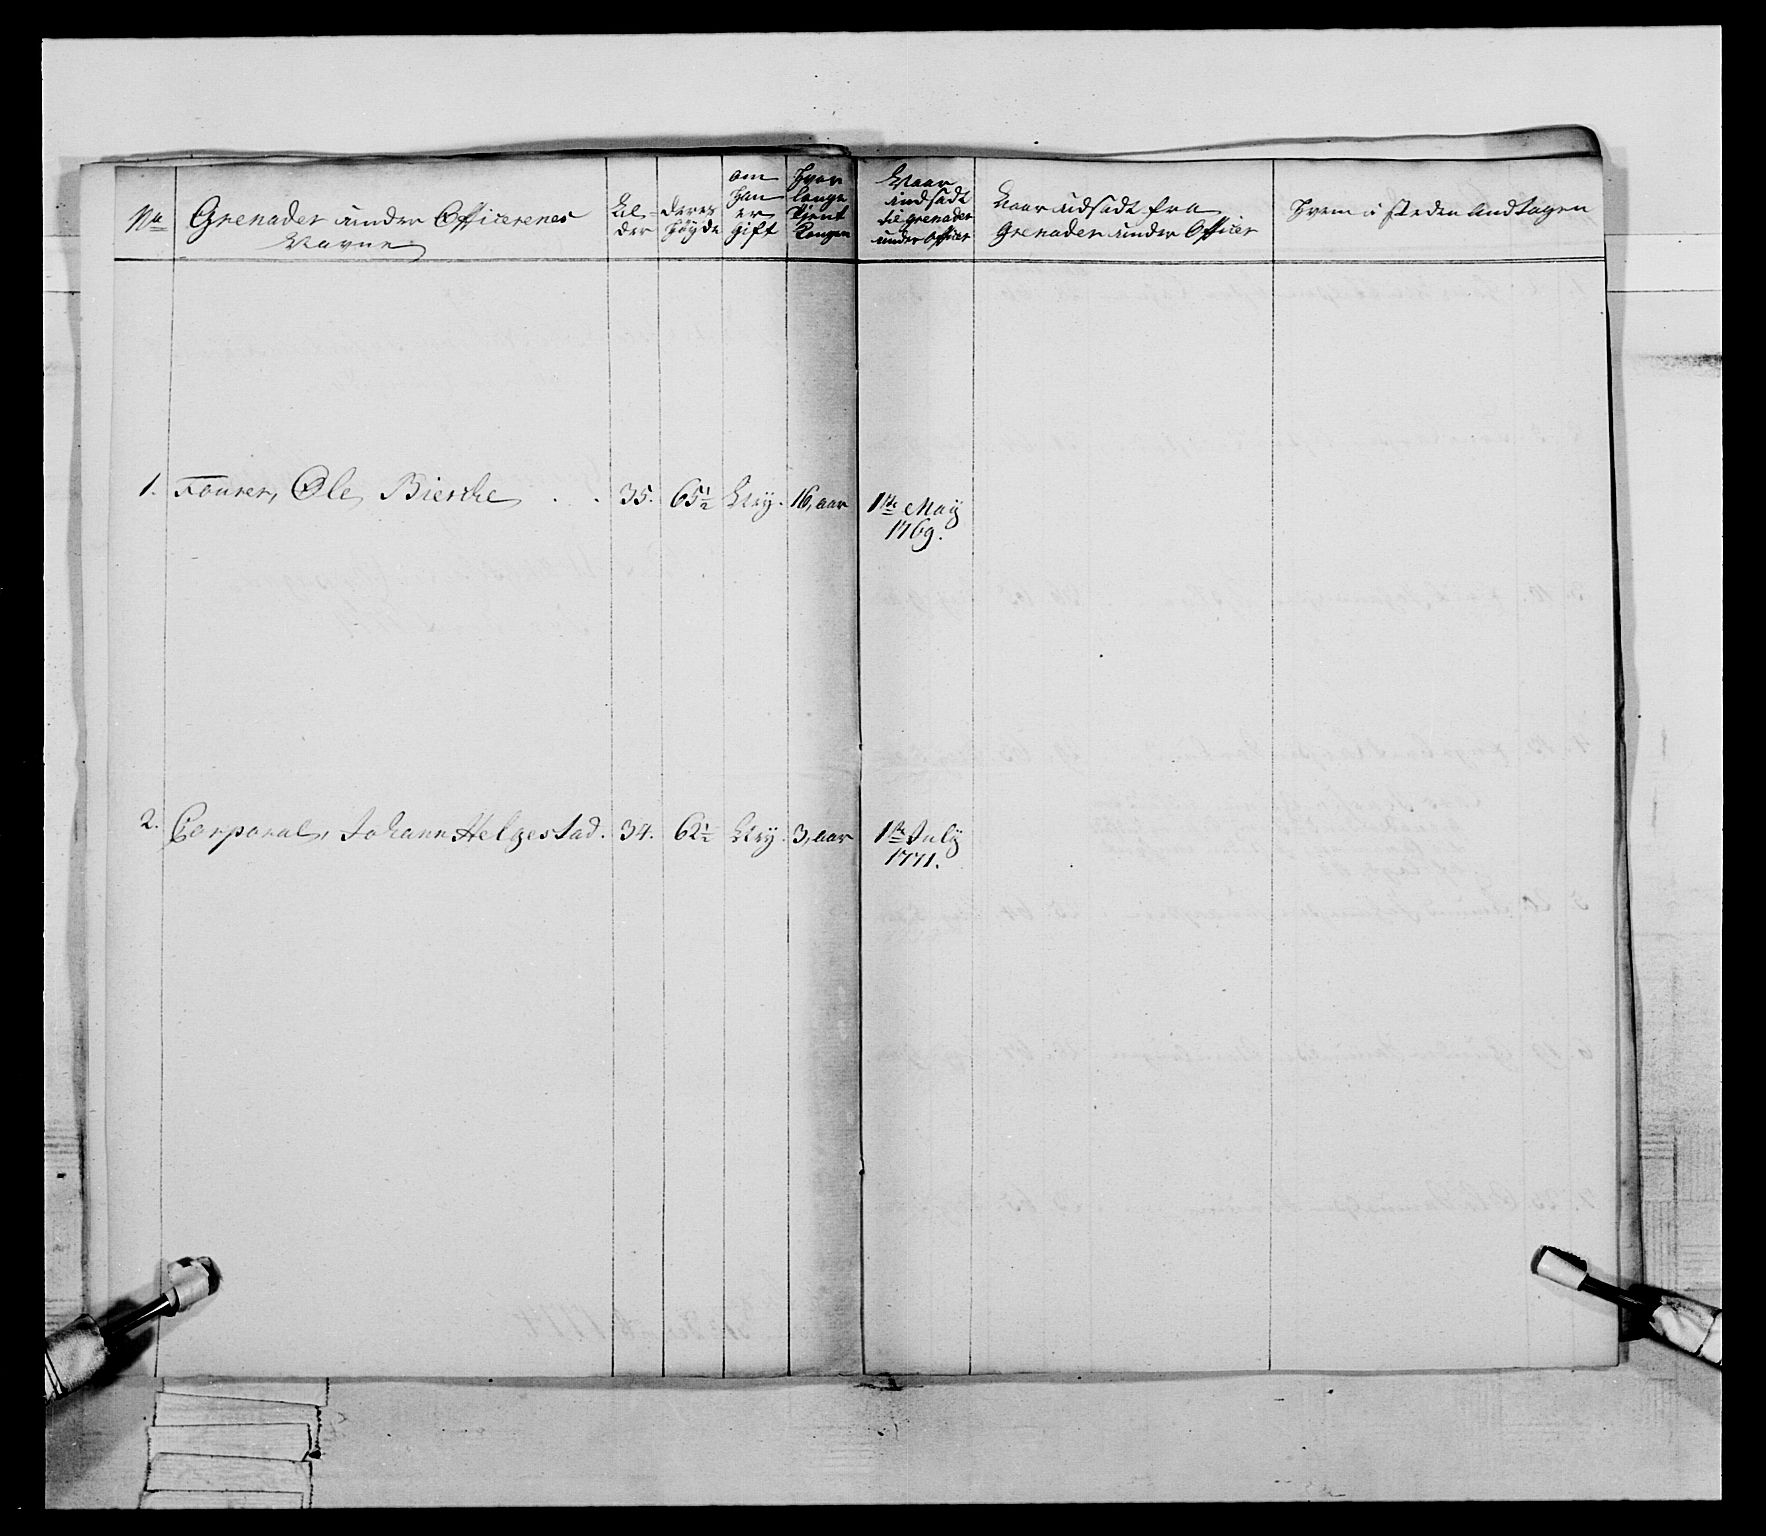 No Grenader under Officerenes
Navne
Al-
der
deres
høyde
om
han
er
gift
hvor
længe
tient
kongen
Naar
indsadt
til grenader
under Officer
Naar udsadt fra
Grenader under Officer
hvem i steden Andtagen
1. Fourer, Ole Bierche . . 35. 65½ Ney. 16, aar 1ste May
1769.
2. Corporal, Johann Helgestad. 34. 62½ Ney. 3, aar 1ste July
1771.